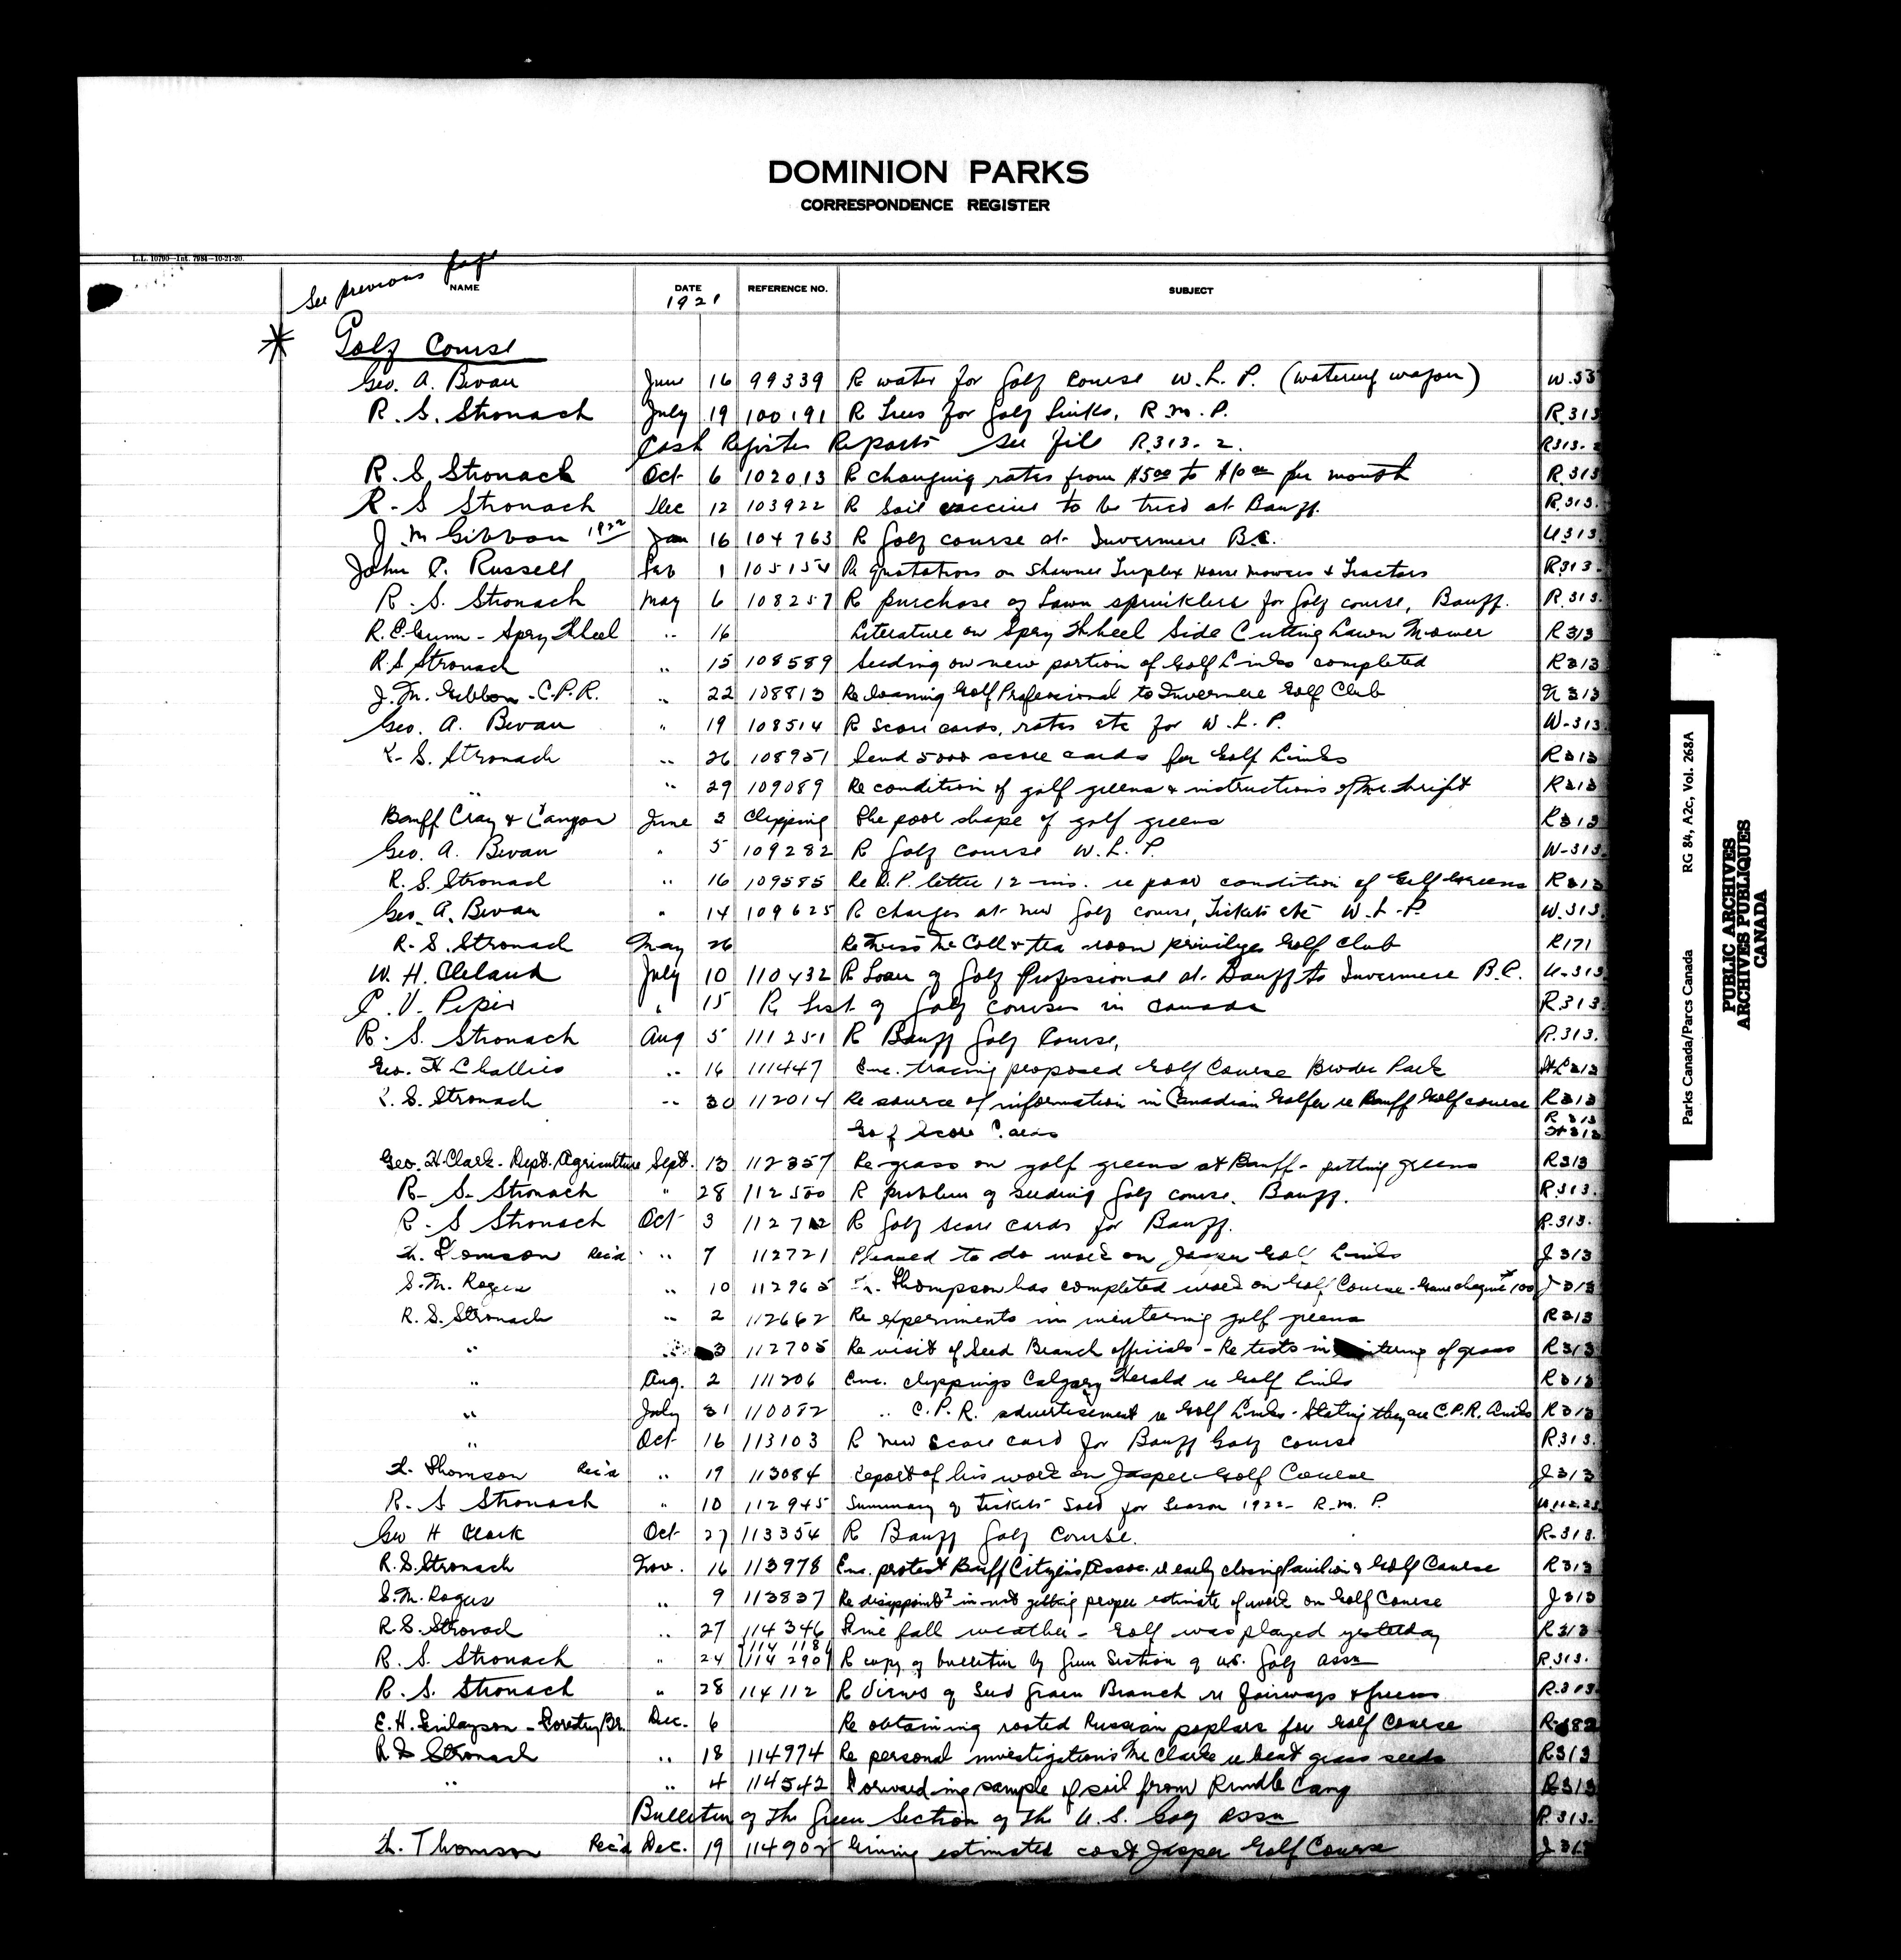 DOMINION PARKS
CORRESPONDENCE REGISTER
L.L. 10790—Int. 7984—10-21-20.
See previous page
NAME DATE REFERENCE NO. SUBJECT
1921
* Golf Course
Geo. A. Bevan June 16 99339 R water for Golf Course W.L.P. (watering wagon) W.53
R. S. Stronach July 19 100191 R Trees for Golf Links, R.M.P. R313
Cash Register Reports See file R313-2. R313-2
R. S. Stronach Oct 6 102013 R changing rates from $5.00 to $10.00 per month R.313
R. S Stronach Dec 12 103922 R Soil vaccine to be tried at Banff. R.313.
J. M Gibbon 1922 Jan 16 104763 R Golf course at Invermere B.C. U313.
John P. Russell Feb 1 105154 Re quotations on Shawnee Triplex Horse Mowers & Tractors R313.
R. S. Stronach May 6 108257 R purchase of Lawn sprinklers for Golf course, Banff. R.313.
R. C. Gunn - Spry Wheel " 16 Literature on Spry Wheel Side Cutting Lawn Mower R313
R. S Stronach " 15 108589 Seeding on new portion of Golf Links completed R313
J. M. Gibbon - C.P.R. " 22 108813 Re loaning Golf Professional to Invermere Golf Club U 313
Geo. A. Bevan " 19 108514 R Score cards, rates etc for W.L.P. W-313.
R. S. Stronach " 26 108951 Send 5000 score cards for Golf Links R313
" " 29 109089 Re condition of golf greens & instructions of Mr. Thrift R313
Banff Crag & Canyon June 3 Clipping The poor shape of golf greens R313
Geo. A. Bevan " 5 109282 R Golf Course W.L.P. W-313.
R. S. Stronach " 16 109585 Re D.P. letter 12 ins. re poor condition of Golf Greens R313
Geo. A. Bevan " 14 109625 R charges at new Golf course, Tickets etc W.L.P. W.313.
R. S. Stronach May 26 Re Miss McColl & tea room privileges Golf Club R171
W. H. Cleland July 10 110432 R Loan of Golf Professional at Banff to Invermere B.C. U-313
C. V. Piper " 15 R List of Golf courses in Canada R313.
R. S. Stronach Aug 5 111251 R Banff Golf Course, R.313.
Geo. H Challies " 16 111447 Enc. tracing proposed Golf Course Broder Park
R. S. Stronach " 30 112014 Re source of information in Canadian Golfer re Banff Golf course R313
Golf Score Cards R 313
Geo. H. Clark - Dept. Agriculture Sept. 13 112357 Re grass on golf greens at Banff - putting greens R313
R. S. Stronach " 28 112500 R problem of seeding Golf course. Banff. R.313.
R. S Stronach Oct 3 112712 R Golf score cards for Banff. R.313.
Rec'd " 7 112721 Pleased to do work on Jasper Golf Links J313
S. M. Rogers " 10 112965 Thompson has completed work on Golf Course - Gave cheque $100 J313
R. S. Stronach " 2 112662 Re experiments in wintering golf greens R313
" " 3 112705 Re visit of Seed Branch officials - Re tests in wintering of grass R313
" Aug. 2 111206 Enc. clippings Calgary Herald re Golf Links R313
" July 31 110082 " C.P.R. advertisement re Golf Links - Stating they are C.P.R. Links R313
" Oct 16 113103 R new score card for Banff Golf course R313.
Thomson Rec'd " 19 113084 report of his work on Jasper Golf Course J313
R. S Stronach " 10 112945 Summary of Tickets Sold for Season 1922 - R.M.P. U.112.25.
Geo H Clark Oct 27 113354 R Banff Golf Course. R-313.
R. S. Stronach Nov. 16 113978 Enc. protest Banff Citizens Assoc. re early closing Pavilion & Golf Course R313
S. M. Rogers " 9 113837 Re disappoint't in not getting proper estimate of work on Golf Course J313
R. S. Stronach " 27 114346 Fine fall weather - Golf was played yesterday R313
114 118
R. S. Stronach " 24 114 290 R copy of bulletin by Green Section of U.S. Golf Assn R.313.
R. S. Stronach " 28 114112 R Views of Seed Grain Branch re fairways & greens R-313.
E. H. Finlayson - Forestry Br. Dec. 6 Re obtaining rooted Russian poplars for Golf Course
R S Stronach " 18 114974 Re personal investigations Mr Clarke re best grass seeds R313
" " 4 114542 Forwarding sample of soil from Rundle Camp R313
Bulletin of the Green Section of the U.S. Golf Assn R.313.
Thomson Rec'd Dec. 19 114902 Giving estimated cost Jasper Golf Course J 313
Parks Canada/Parcs Canada RG 84, A2c, Vol. 268A
PUBLIC ARCHIVES
ARCHIVES PUBLIQUES
CANADA